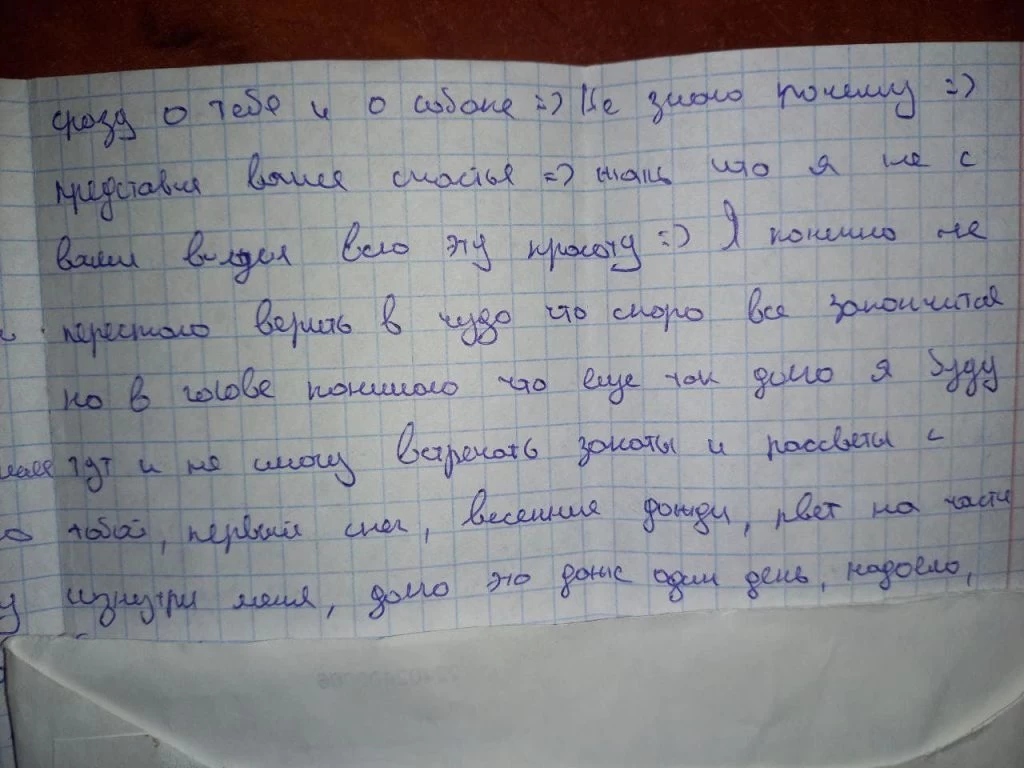 сразу о тебе и о собаке =) Не знаю почему =)
представил ваше счастье =) жаль что я не с
вами видел всю эту красоту =) Я конешно не
перестаю верить в чудо что скоро все закончится
но в голове понимаю что еще так долго я буду
тут и не смогу встречать закаты и рассветы с
тобой, первый снег, весенние дожди, рвет на части
изнутри меня, долго это даже один день, надоело,